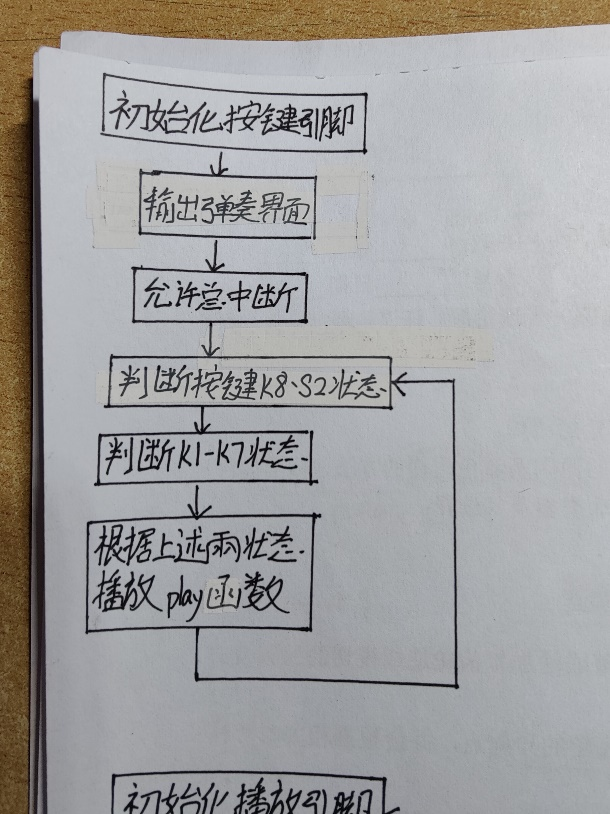 初始化按键引脚
输出弹奏界面
允许总中断
判断按键K8、S2状态
判断K1-K7状态
根据上述两状态
播放play函数
初始化播放引脚